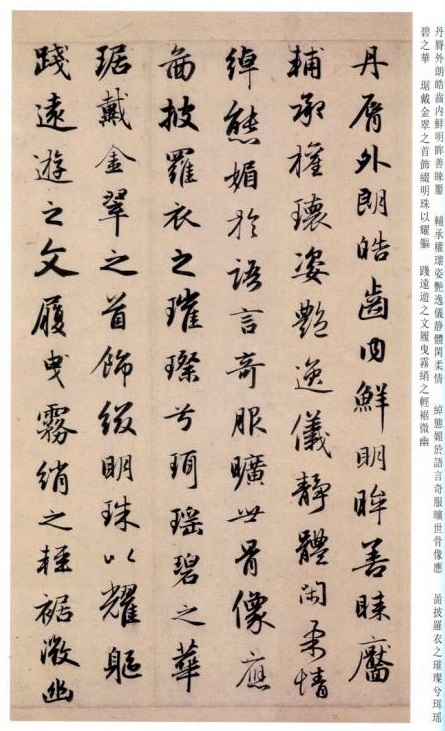 丹脣外朗皓齒内鮮明眸善睞靨　輔承權瓌姿艷逸儀静體閑柔情　綽態媚於語言奇服曠世骨像應　啚披羅衣之璀璨兮珥瑶
碧之華　琚戴金翠之首飾綴明珠以耀軀　踐遠遊之文履曳霧綃之輕裾微幽
丹脣外朗皓齒内鮮明眸善睞靨
輔承權瓌姿艷逸儀静體閑柔情
綽態媚於語言奇服曠世骨像應
啚披羅衣之璀璨兮珥瑶碧之華
琚戴金翠之首飾綴明珠以耀軀
踐遠遊之文履曳霧綃之輕裾微幽